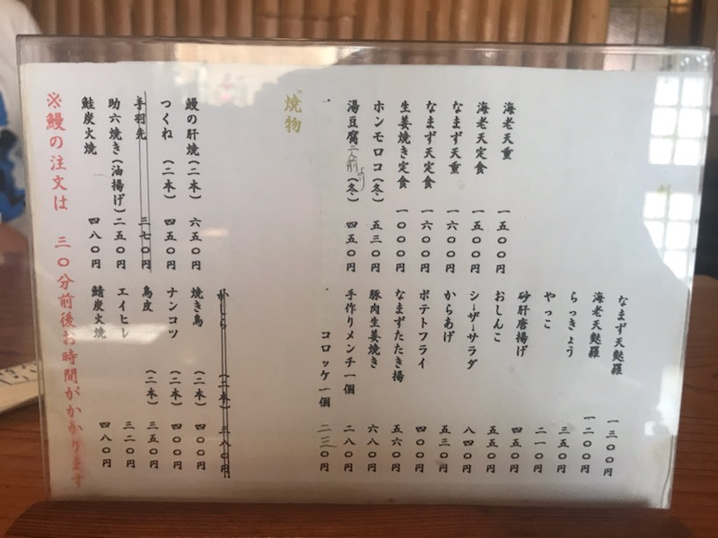 海老天重 一五〇〇円
海老天定食 一五〇〇円
なまず天重 一六〇〇円
なまず天定食 一六〇〇円
生姜焼き定食 一〇〇〇円
ホンモロコ(冬) 五三〇円
湯豆腐二人前より(冬) 四五〇円
なまず天麩羅 一三〇〇円
海老天麩羅 一二〇〇円
らっきょう 三五〇円
やっこ 二一〇円
砂肝唐揚げ 四五〇円
おしんこ 五五〇円
シーザーサラダ 八四〇円
からあげ 五三〇円
ポテトフライ 四〇〇円
なまずたたき揚 五六〇円
豚肉生姜焼き 六八〇円
手作りメンチ一個 二八〇円
コロッケ一個 二三〇円
焼物
鰻の肝焼(二本) 六五〇円
つくね (二本) 四五〇円
手羽先 三七〇円
助六焼き(油揚げ) 二五〇円
鮭炭火焼 四八〇円
かしら (二本) 三八〇円
焼き鳥 (二本) 四〇〇円
ナンコツ (二本) 四〇〇円
鳥皮 (二本) 三五〇円
エイヒレ 三二〇円
鯖炭火焼 四八〇円
※鰻の注文は 三〇分前後お時間がかかります